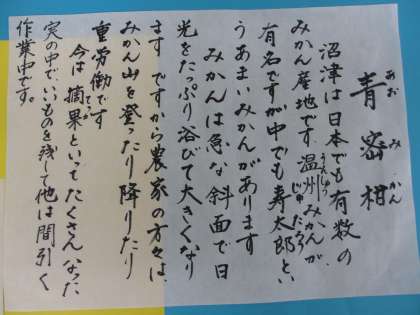 あおみかん
青密柑
沼津は日本でも有数の
みかん産地です。温州みかんが
うんしゅう
有名ですが中でも寿太郎とい
じゅたろう
うあまいみかんがあります
みかんは急な斜面で日
光をたっぷり浴びて大きくなり
ます ですから農家の方々は、
みかん山を登ったり降りたり
重労働です
今は摘果といってたくさんなった
てきか
実の中で、いいものを残して他は間引く
作業中です。